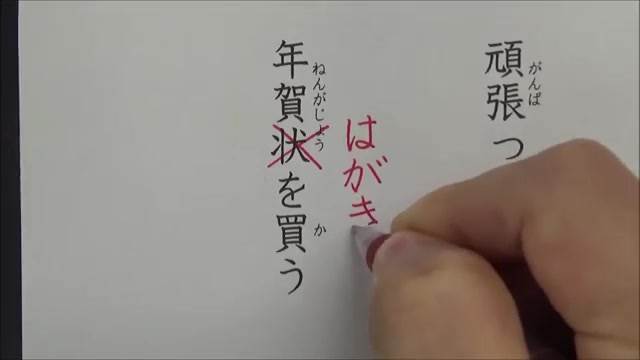 頑張っ
がんば
年賀状を買う
ねんがじょう
か
はがき